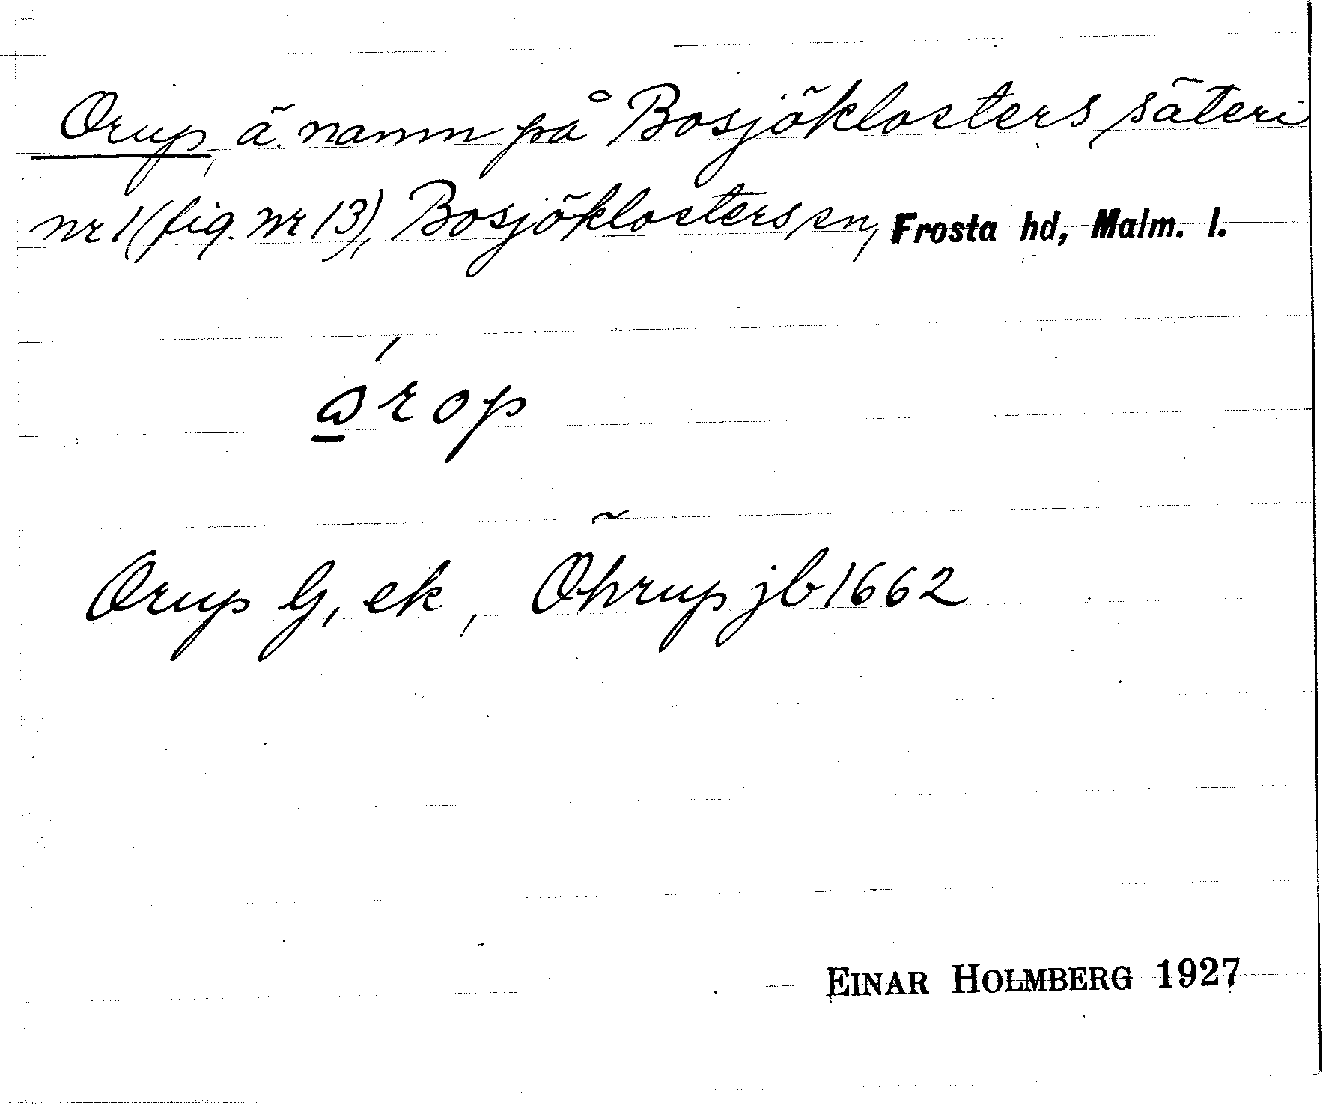 Orup, ä. namn på Bosjöklosters säteri
nr 1 (fig. nr 13), Bosjöklosters sn, Frosta hd, Malm. l.
órop
Orup G, ek, Õhrup jb 1662
EINAR HOLMBERG 1927